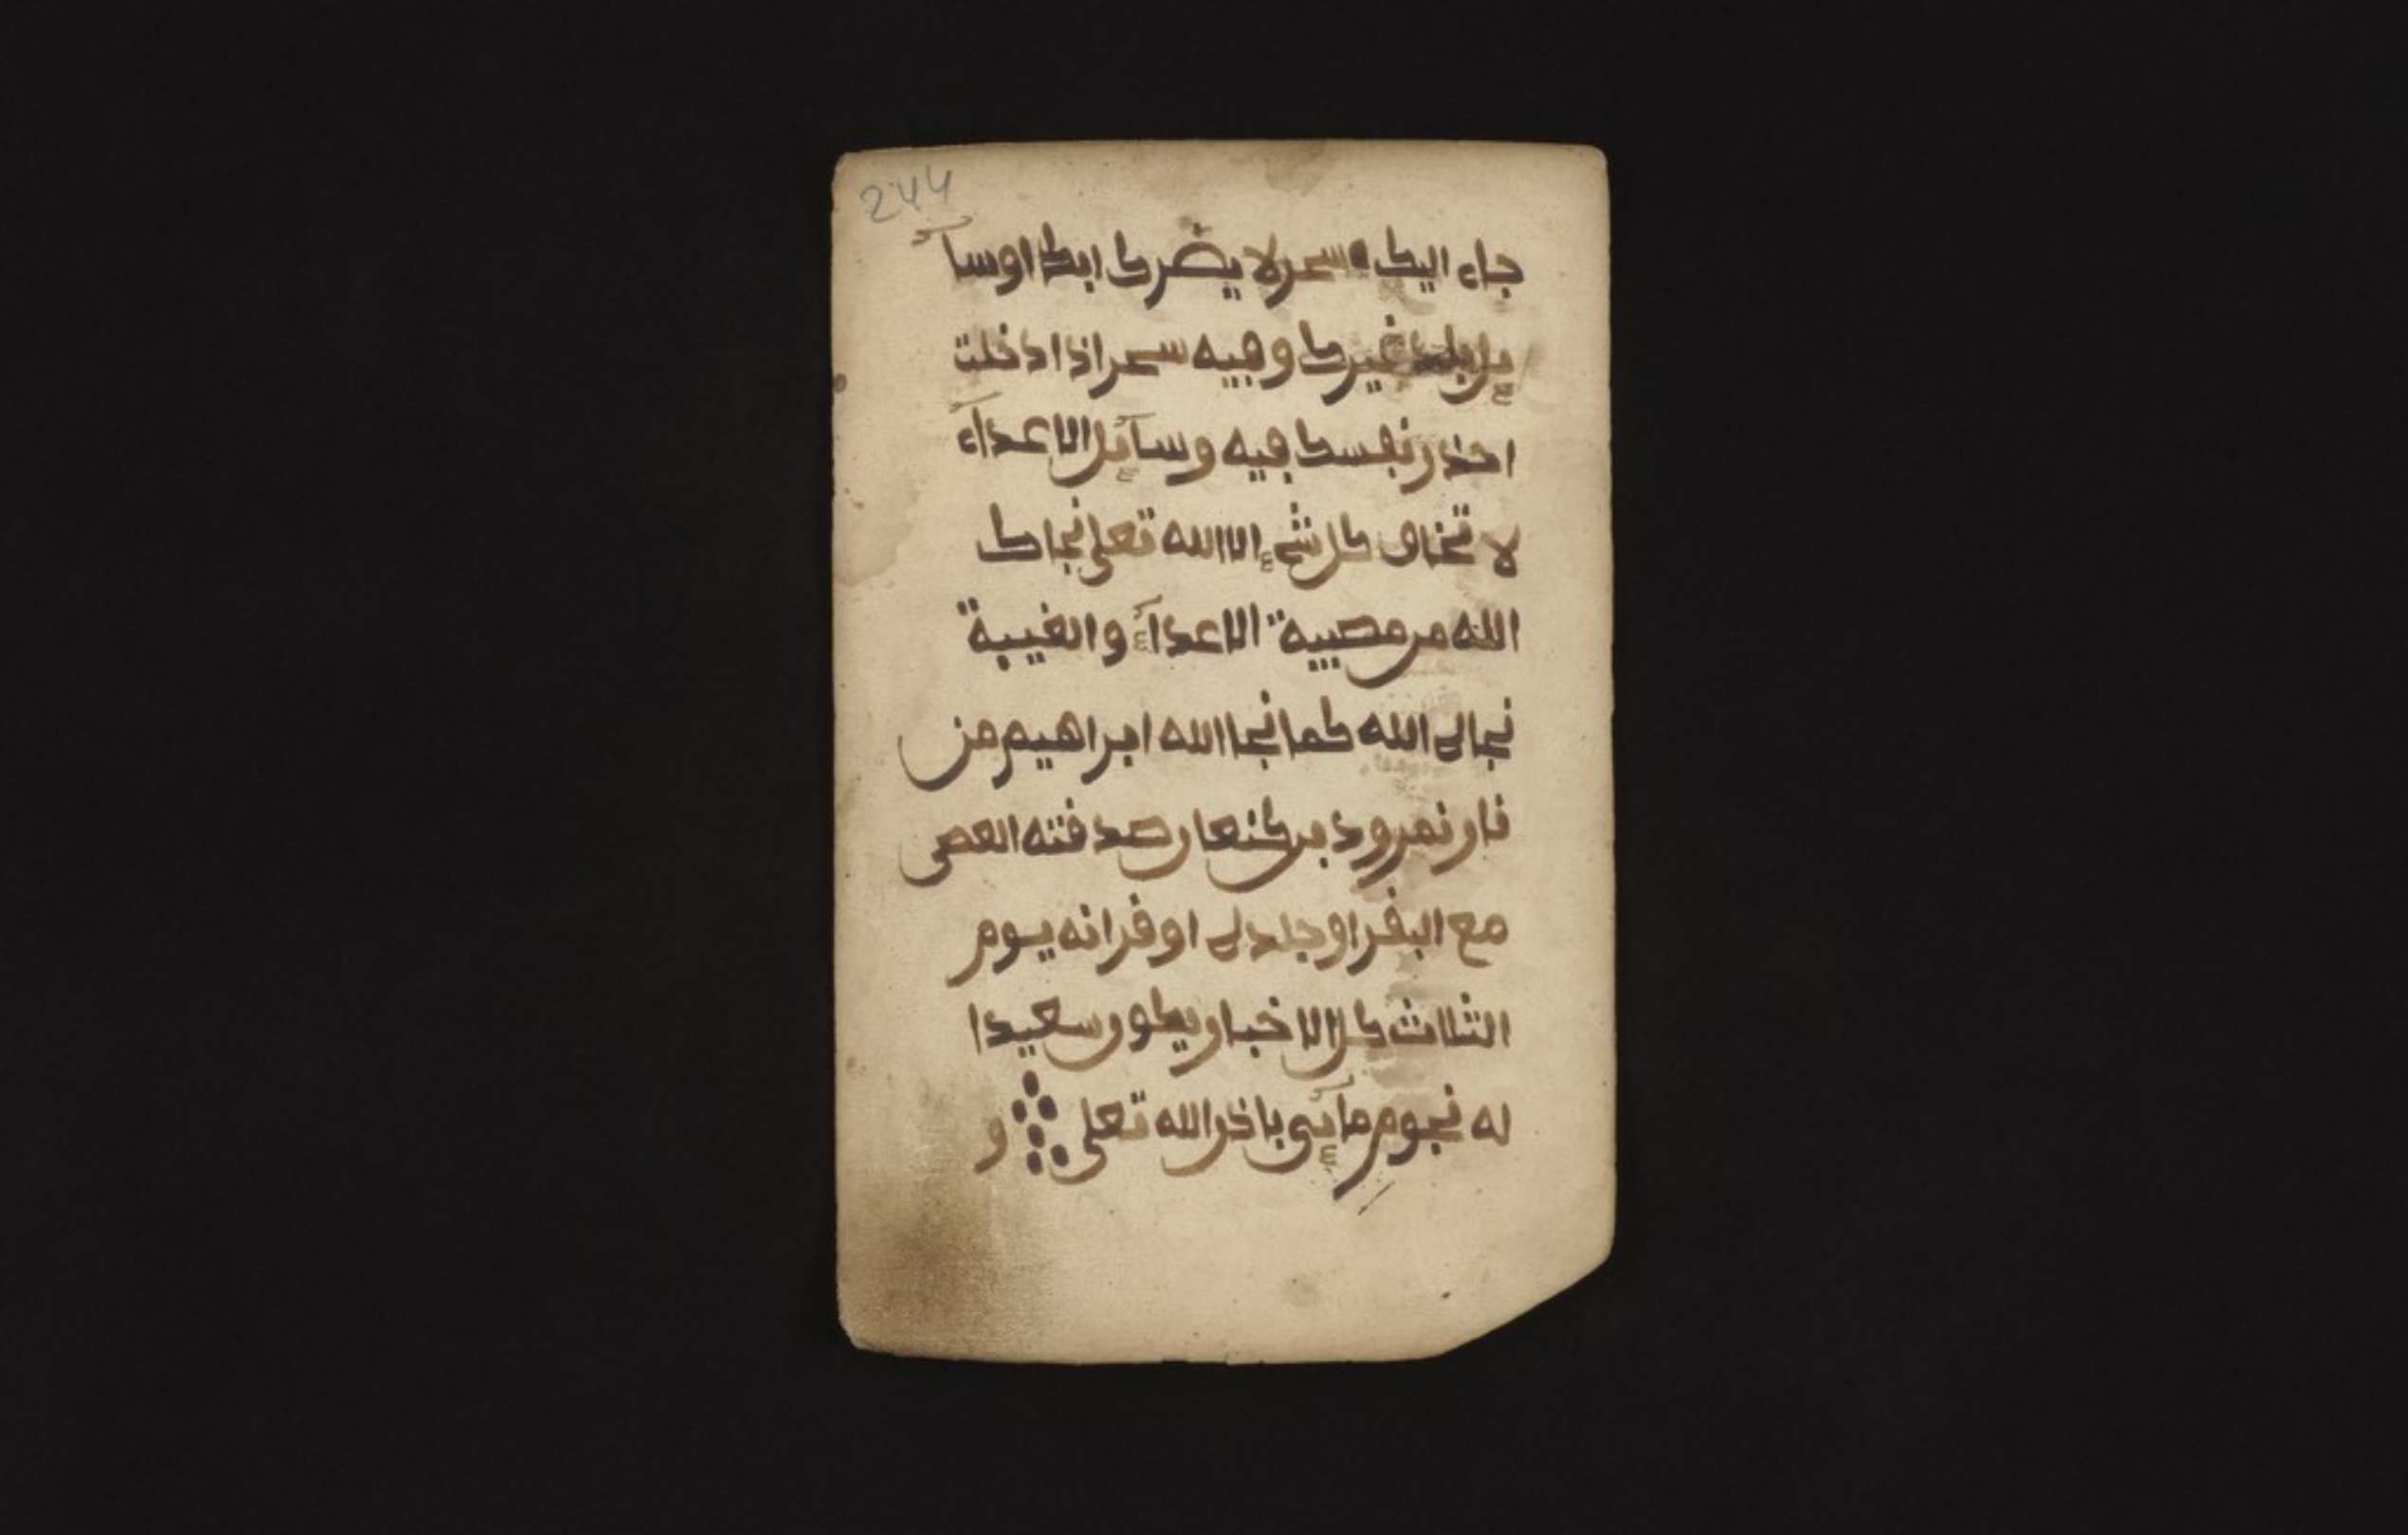 244
جاء اليك سحر لا يضرك ابدا اوسا
ىل بلد غيرك وفيه سحر اذا دخلت
احذر نفسك فيه وسائل الاعداء
لا تخاف كل شيء الا الله تعلى نجاك
الله من مصيبة الاعداء والغيبة
نجاك الله كما نجا الله ابراهيم من
نار نمرود بن كنعان صدقته
مع البقر او جلده او قرانه يوم
الثلاث كل الاخبار يكون سعيدا
له نجوم مائى باذن الله تعلى و